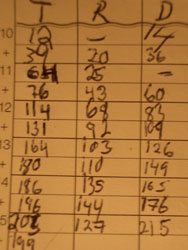 T R D
10 12 - 14
+ 39 20 36
11 64 25 -
+ 76 43 60
12 114 68 83
+ 131 92 109
13 164 103 126
+ 180 110 149
14 186 135 165
+ 196 144 176
5 203 127 215
199